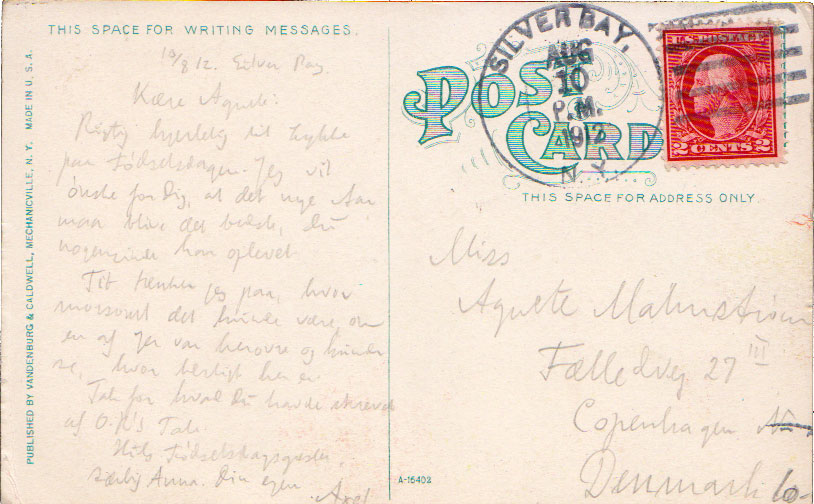 THIS SPACE FOR WRITING MESSAGES.
10/8 12. Silver Bay
Kære Agnete
Rigtig hjertelig til Lykke
paa Fødselsdagen. Jeg vil
ønske for Dig, at det nye Aar
maa blive det bedste, Du
nogensinde har oplevet.
Tit tænker jeg paa, hvor
morsomt det kunde være, om
en af Jer var herovre og kunde
se, hvor herligt her er.
Tak for hvad Du havde skrevet
af O. 's Tale.
Hils Fødselsdagsgæster,
særlig Anna. Din egen
Axel
PUBLISHED BY VANDENBURG & CALDWELL, MECHANICVILLE, N. Y. MADE IN U. S. A.
POST CARD
SILVER BAY,
AUG
10
P.M.
1912
N.Y.
U.S. POSTAGE
2 CENTS 2
THIS SPACE FOR ADDRESS ONLY.
Miss
Agnete Malmstrøm
Fælledvej 27 III
Copenhagen N
Denmark
A-15402